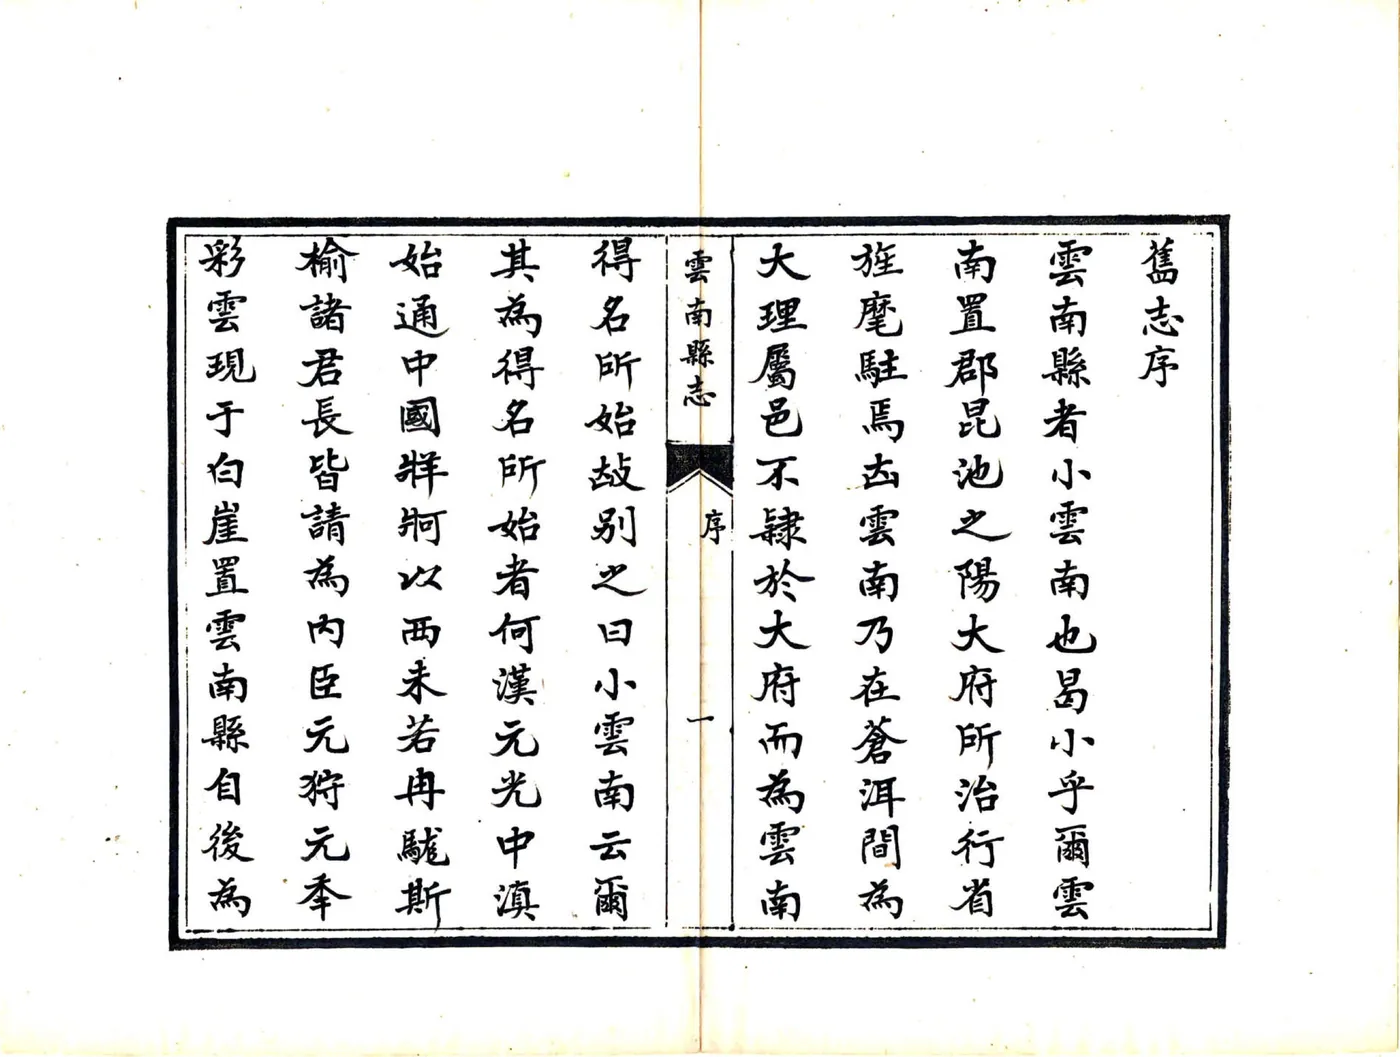 舊志序
雲南縣者小雲南也曷小乎爾雲
南置郡昆池之陽大府所治行省
旌麾駐焉茲雲南乃在蒼洱間為
大理屬邑不隸於大府而為雲南
雲南縣志
序
一
得名所始故別之曰小雲南云爾
其為得名所始者何漢元光中滇
始通中國牂牁以西未若冉駹斯
榆諸君長皆請為內臣元狩元年
彩雲現于白崖置雲南縣自後為